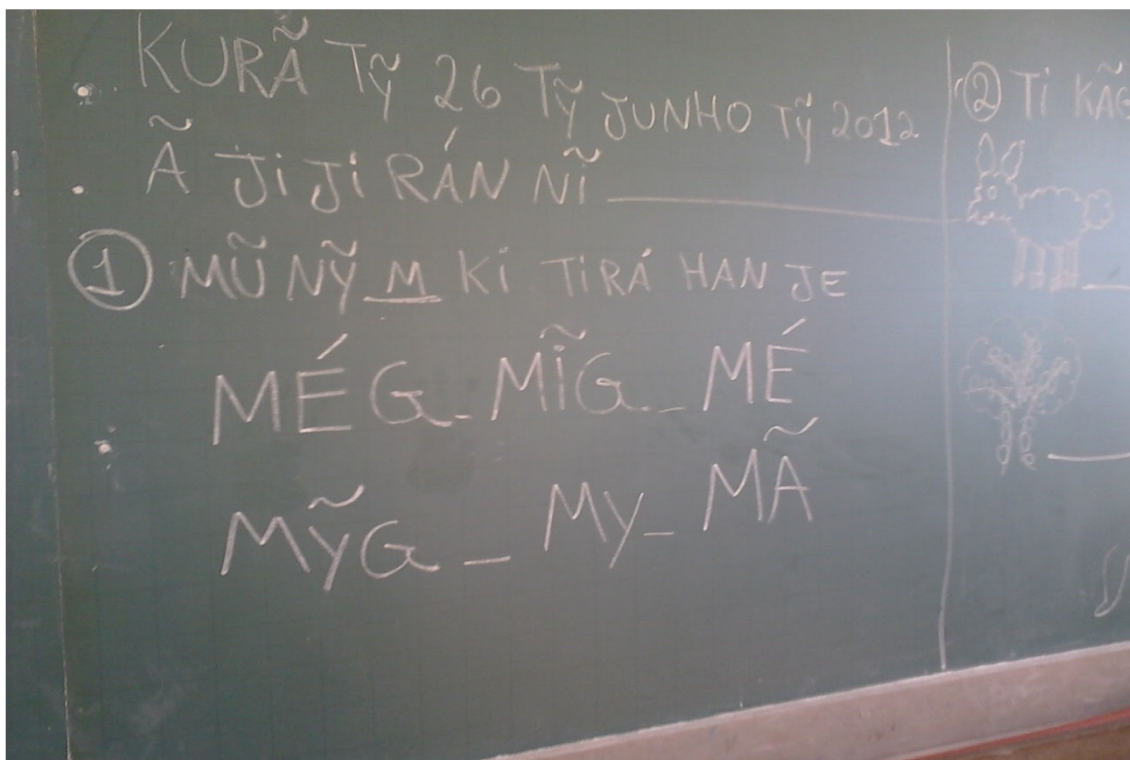 KURÃ TỸ 26 TỸ JUNHO TỸ 2012
Ã JIJI RÁN NĨ
① MŨ NỸ M KI TIRÁ HAN JE
MÉG - MĨG - MÉ
MỸG - MY - MÃ
② TI